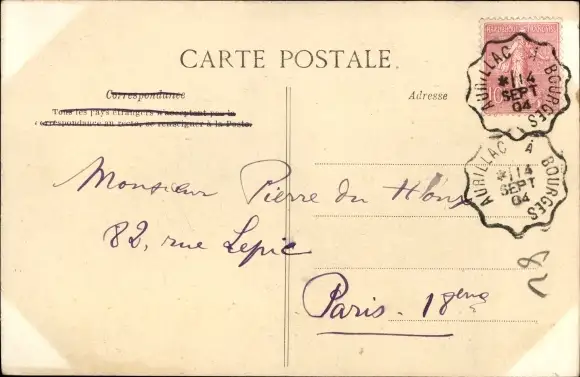 CARTE POSTALE.
Correspondance
Tous les pays étrangers n'acceptant pas la
correspondance au recto, se renseigner à la Poste.
Adresse
10
AURILLAC A BOURGES
*114
SEPT
04
AURILLAC A BOURGES
*114
SEPT
04
Monsieur Pierre du
82, rue Lepic
Paris. 18ème
82